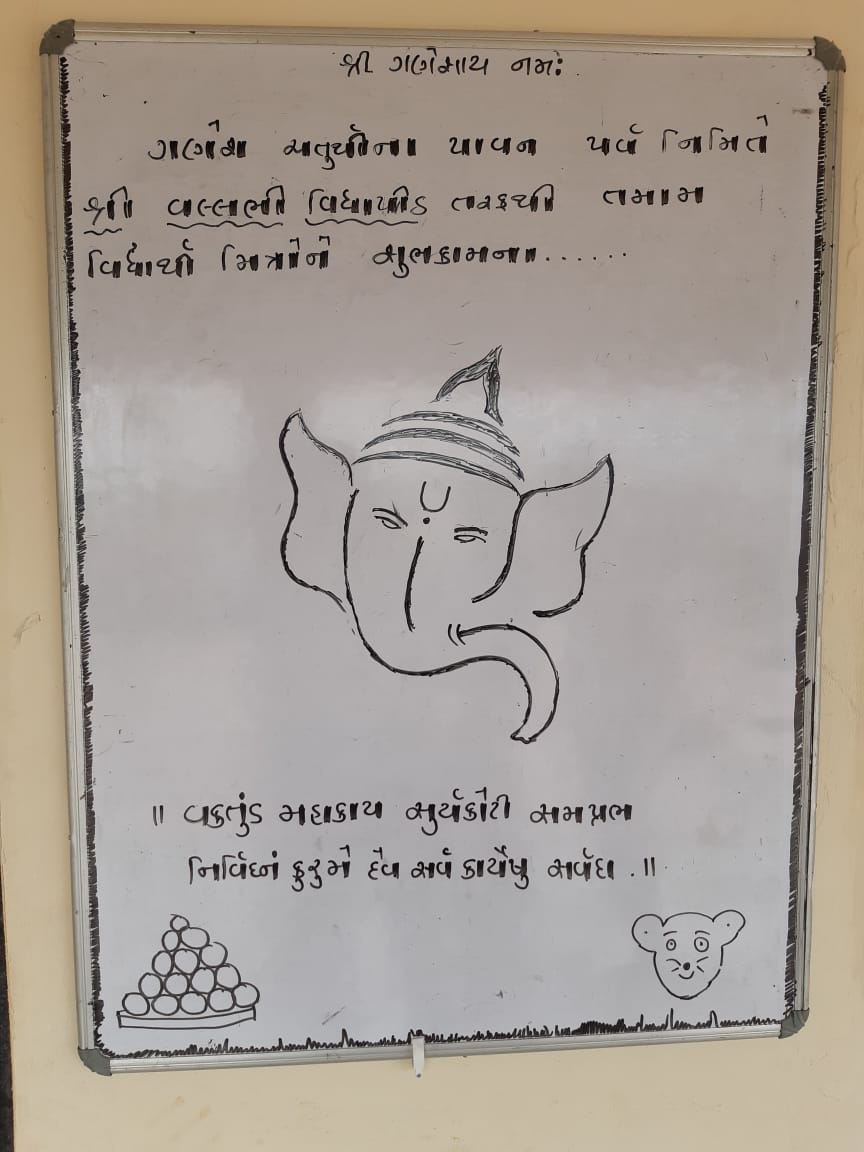 શ્રી ગણેશાય નમઃ
ગણેશ ચતુર્થીના પાવન પર્વ નિમિતે
શ્રી વલ્લભી વિધાપીઠ તરફથી તમામ
વિર્ધાથી મિત્રોને શુભકામના......
॥ વક્રતુંડ મહાકાય સુર્યકોટી સમપ્રભ
નિર્વિઘ્નં કુરુમે દેવ સર્વ કાર્યેષુ સર્વદા .॥